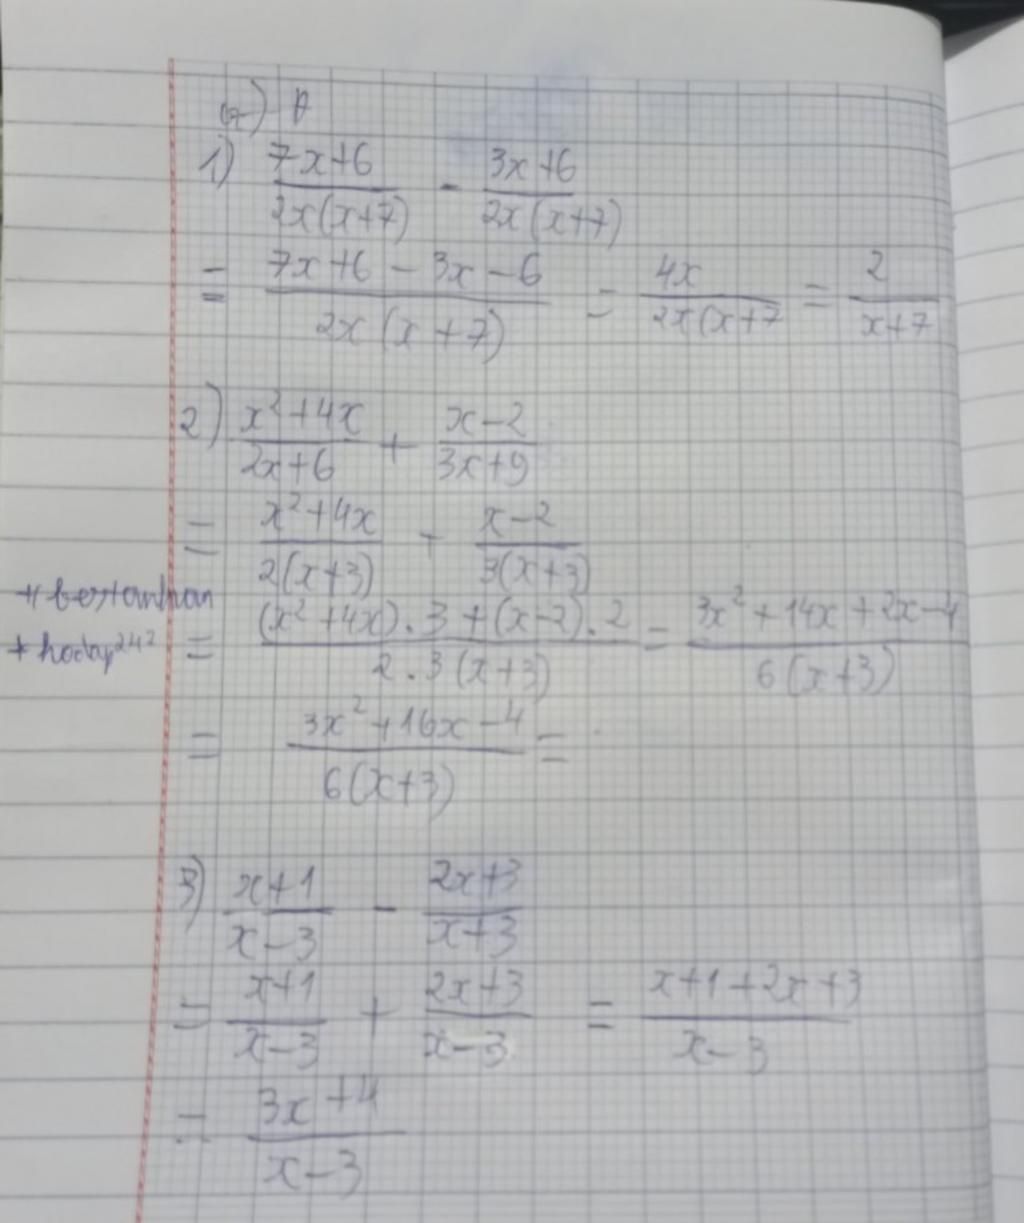 1) (7x+6)/(2x(x+7)) - (3x+6)/(2x(x+7))
= (7x+6-3x-6)/(2x(x+7)) = 4x/(2x(x+7) = 2/(x+7)
2) (x²+4x)/(2x+6) + (x-2)/(3x+9)
= (x²+4x)/(2(x+3)) + (x-2)/(3(x+3))
= ((x²+4x).3+(x-2).2)/(2.3(x+3)) = (3x²+14x+2x-4)/(6(x+3))
= (3x²+16x-4)/(6(x+3)) =
3) (x+1)/(x-3) - (2x+3)/(x+3)
= (x+1)/(x-3) + (2x+3)/(x-3) = (x+1+2x+3)/(x-3)
= (3x+4)/(x-3)